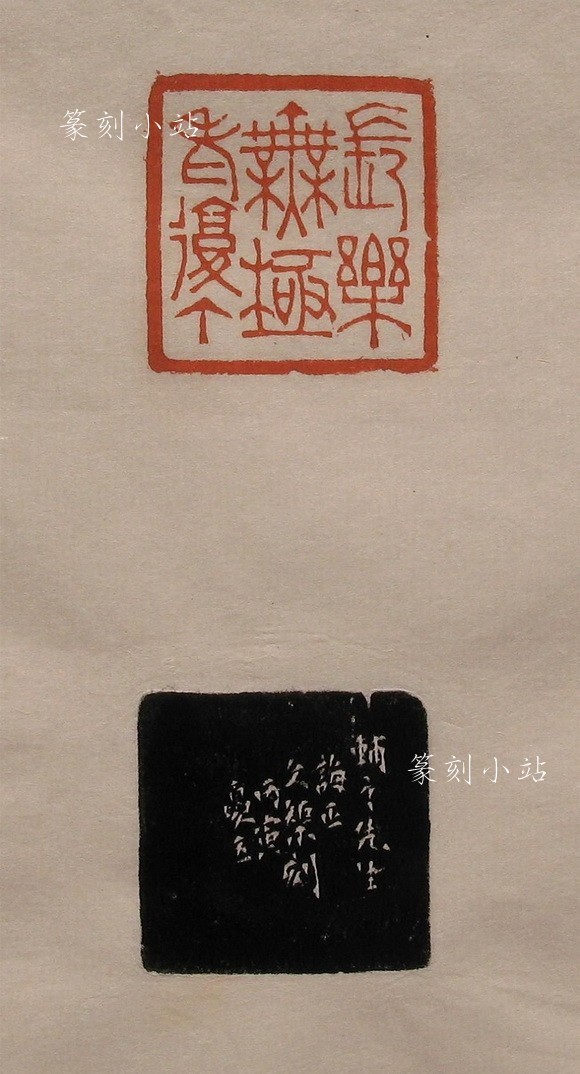 篆刻小站
長樂
無極
老復丁
篆刻小站
輔之先生
誨正
刻
丙寅
夏五